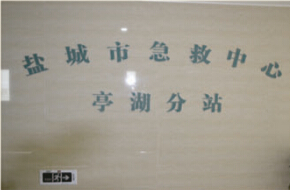 盐城市急救中心
亭湖分站